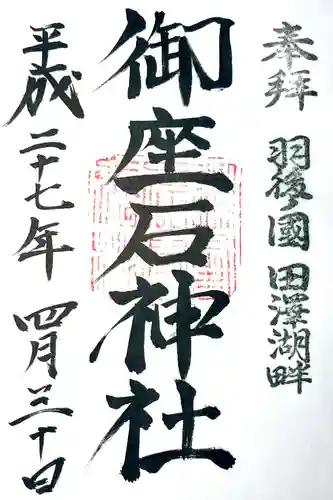 奉拝
羽後國 田澤湖畔
御座石神社
平成二十七年 四月三十日